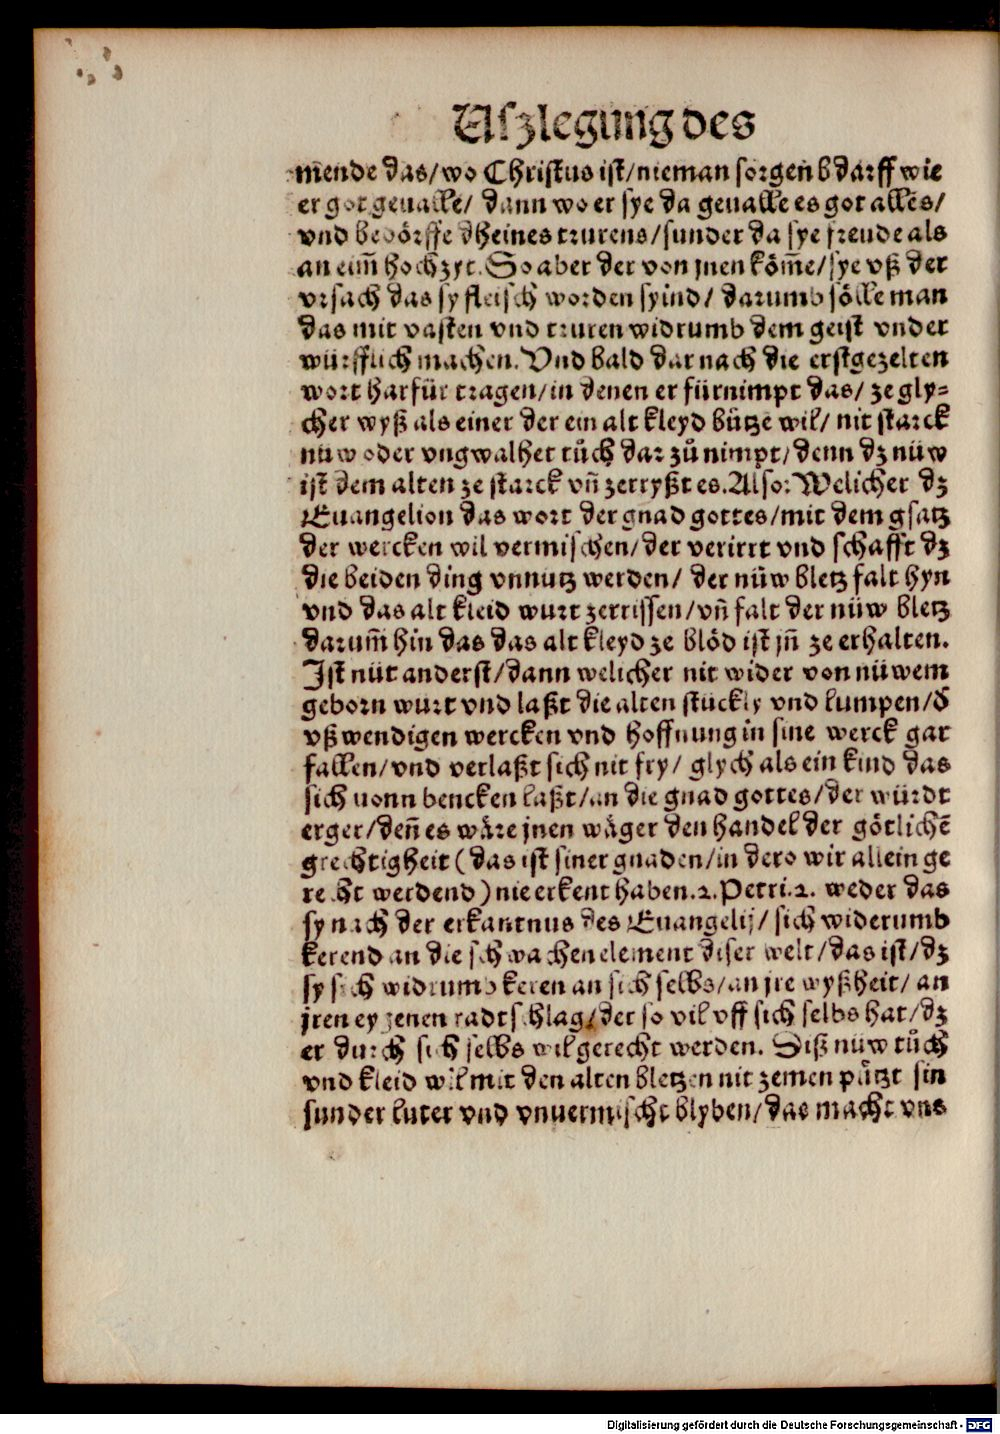 Uſzlegung des
mende das/wo Chriſtus iſt/nieman ſorgen bdarff wie
er got geualle/ dann wo er ſye da geualle es got alles/
vnd bedörffe dheines trurens/ſunder da ſye freude als
an eim̄ hochzyt. So aber der von jnen köm̄e/ſye vß der
vrſach das ſy fleiſch worden ſyind/ darumb ſölle man
das mit vaſten vnd truren widrumb dem geiſt vnder
würfflich machen. Vnd bald dar nach die erſtgezelten
wort harfür tragen/in denen er fürnimpt das/ ze gly⸗
cher wyß als einer der ein alt kleyd bütze wil/ nit ſtarck
nüw oder vngwalhet tůch dar zů nimpt/denn dz nüw
iſt dem alten ze ſtarck vn̄ zerryßt es. Alſo: Welicher dz
Euangelion das wort der gnad gottes/mit dem gſatz
der wercken wil vermiſchen/der verirrt vnd ſchafft dz
die beiden ding vnnutz werden/ der nüw bletz falt hyn
vnd das alt kleid wurt zerriſſen/vn̄ falt der nüw bletz
darum̄ hin das das alt kleyd ze blöd iſt jn̄ ze erhalten.
Iſt nüt anderſt/dann welicher nit wider von nüwem
geborn wurt vnd laßt die alten ſtückly vnd lumpen/d̄
vßwendigen wercken vnd hoffnung in ſine werck gar
fallen/vnd verlaßt ſich nit fry/ glych als ein kind das
ſich uonn bencken laßt/an die gnad gottes/der würdt
erger/den̄ es wäre jnen wäger den handel der götlichē
grechtigheit (das iſt ſiner gnaden/in dero wir allein ge
recht werdend) nie erkent haben. 2. Petri. 2. weder das
ſy nach der erkantnus des Euangelij/ ſich widerumb
kerend an die ſchwachen element diſer welt/das iſt/dz
ſy ſich widrumb keren an ſich ſelbs/an jre wyßheit/ an
jren eygenen radtſchlag/der ſo vil vff ſich ſelbs hat/dz
er durch ſich ſelbs wil gerecht werden. Diß nüw tůch
vnd kleid wil mit den alten bletzen nit zemen pätzt ſin
ſunder luter vnd vnuermiſcht blyben/das macht vns
Digitalisierung gefördert durch die Deutsche Forschungsgemeinschaft - DFG